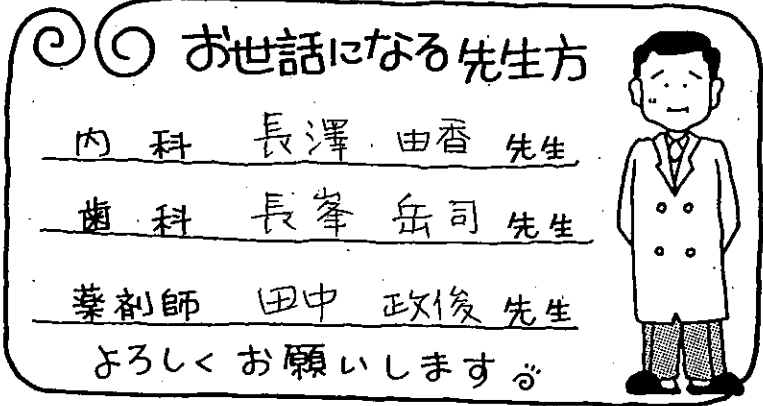 お世話になる先生方
内科 長澤 由香 先生
歯科 長峯 岳司 先生
薬剤師 田中 政俊 先生
よろしくお願いします